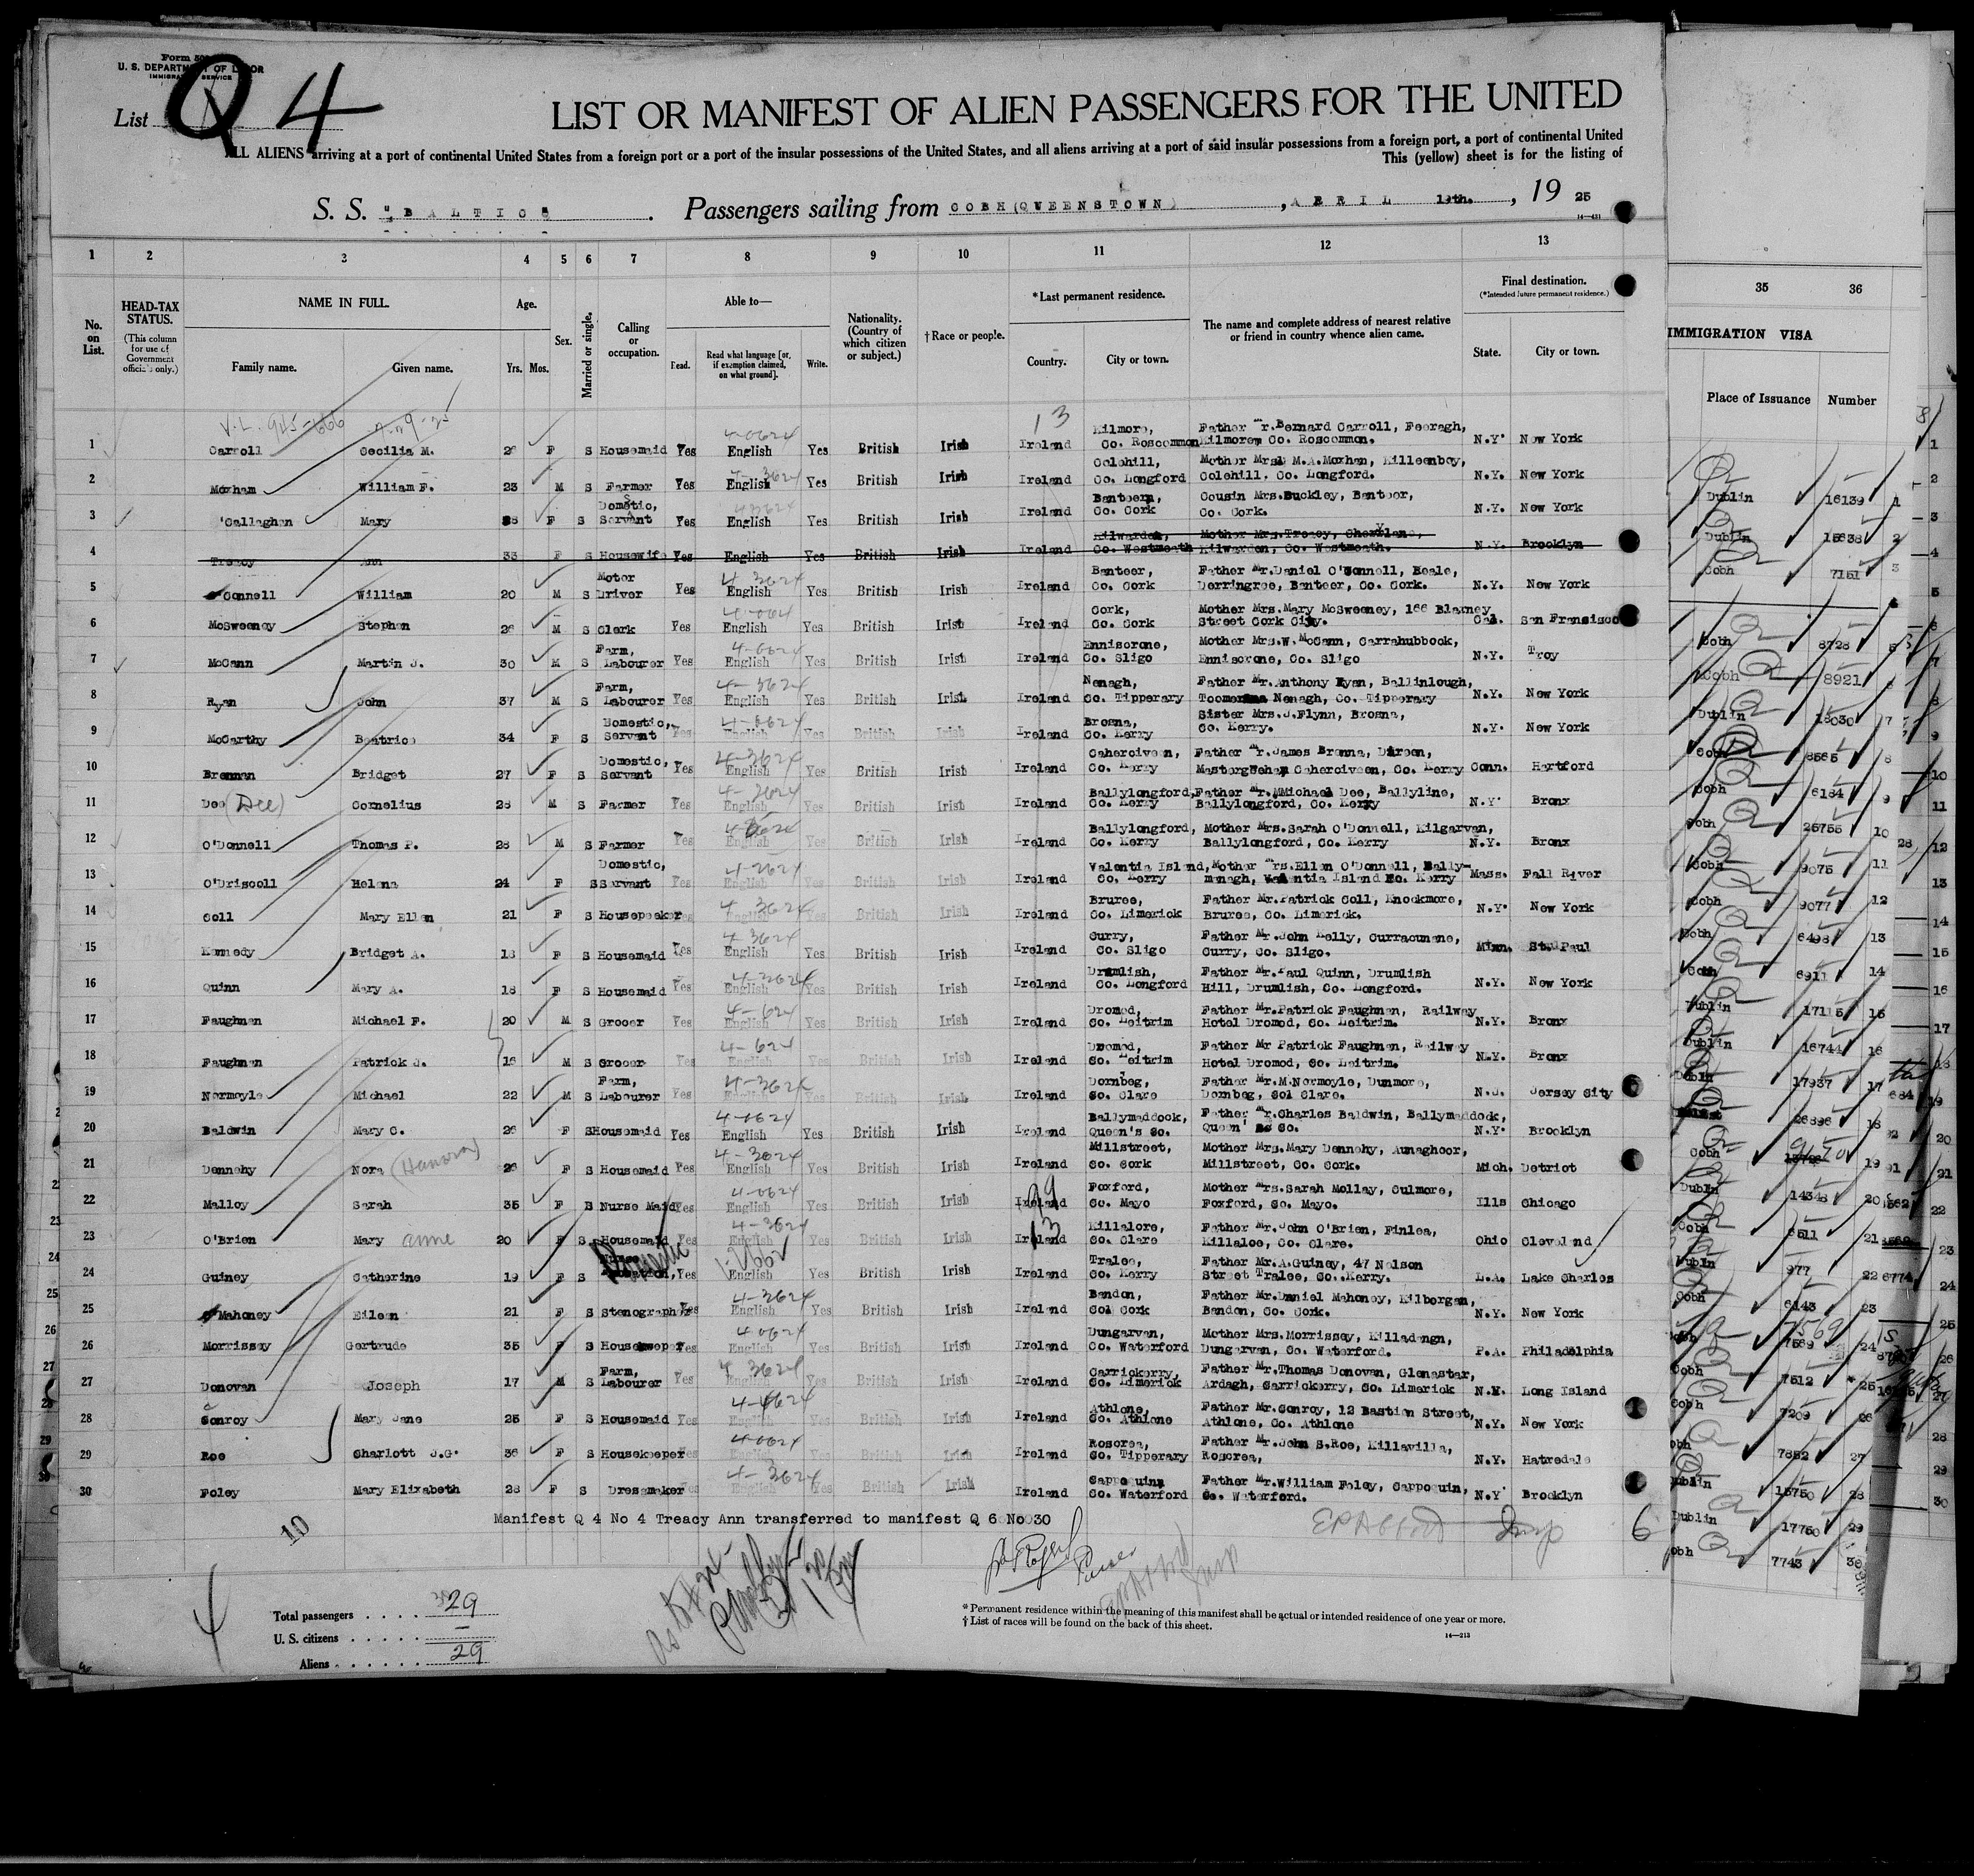 Form 50
U. S. DEPARTMENT OF LABOR
IMMIGRATION SERVICE
List Q 4
LIST OR MANIFEST OF ALIEN PASSENGERS FOR THE UNITED
ALL ALIENS arriving at a port of continental United States from a foreign port or a port of the insular possessions of the United States, and all aliens arriving at a port of said insular possessions from a foreign port, a port of continental United
This (yellow) sheet is for the listing of
S. S. "BALTIC" Passengers sailing from COBH (QUEENSTOWN), APRIL 19th., 1925
14—431
1 2 3 4 5 6 7 8 9 10 11 12 13
35 36
No. on List. HEAD-TAX STATUS. (This column for use of Government officials only.) NAME IN FULL. Family name. Given name. Age. Yrs. Mos. Sex. Married or single. Calling or occupation. Able to— Read. Read what language [or, if exemption claimed, on what ground]. Write. Nationality. (Country of which citizen or subject.) † Race or people. *Last permanent residence. Country. City or town. The name and complete address of nearest relative or friend in country whence alien came. Final destination. (*Intended future permanent residence.) State. City or town.
IMMIGRATION VISA
Place of Issuance Number
V.L. 945-666
1 Carroll Cecilia M. 26 F S Housemaid Yes English Yes British Irish Ireland Kilmore, Co. Roscommon Father Mr. Bernard Carroll, Feeragh, Kilmore, Co. Roscommon. N.Y. New York
2 Moxham William F. 23 M S Farmer Yes English Yes British Irish Ireland Colehill, Co. Longford Mother Mrs. M.A. Moxhan, Killeenboy, Colehill, Co. Longford. N.Y. New York
3 'Callaghan Mary F S Domestic, Servant Yes English Yes British Irish Ireland Banteer, Co. Cork Cousin Mrs. Buckley, Banteer, Co. Cork. N.Y. New York
4 Treacy Ann 33 F S Housewife Yes English Yes British Irish Ireland Kilwarden, Co. Westmeath Mother Mrs. Treacy, Kilwarden, Co. Westmeath. N.Y. Brooklyn
5 Connell William 20 M S Motor Driver Yes English Yes British Irish Ireland Banteer, Co. Cork Father Mr. Daniel O'Connell, Beale, Derringree, Banteer, Co. Cork. N.Y. New York
6 McSweeney Stephen 26 M S Clerk Yes English Yes British Irish Ireland Cork, Co. Cork Mother Mrs. Mary McSweeney, 166 Blarney Street Cork City. Cal. San Fransisco
7 McCann Martin J. 30 M S Farm, Labourer Yes English Yes British Irish Ireland Enniscrone, Co. Sligo Mother Mrs. W. McCann, Carrahubbock, Enniscrone, Co. Sligo N.Y. Troy
8 Ryan John 37 M S Farm, Labourer Yes English Yes British Irish Ireland Nenagh, Co. Tipperary Father Mr. Anthony Ryan, Ballinlough, Nenagh, Co. Tipperary N.Y. New York
9 McCarthy Beatrice 34 F S Domestic, Servant Yes English Yes British Irish Ireland Brosna, Co. Kerry Sister Mrs. J. Flynn, Brosna, Co. Kerry. N.Y. New York
10 Brennan Bridget 27 F S Domestic, Servant Yes English Yes British Irish Ireland Caherciveen, Co. Kerry Father Mr. James Brenna, Caherciveen, Co. Kerry Conn. Hartford
11 Dee (Dee) Cornelius 28 M S Farmer Yes English Yes British Irish Ireland Ballylongford, Co. Kerry Father Mr. MMichael Dee, Ballyline, Ballylongford, Co. Kerry N.Y. Bronx
12 O'Donnell Thomas P. 28 M S Farmer Yes English Yes British Irish Ireland Ballylongford, Co. Kerry Mother Mrs. Sarah O'Donnell, Kilgarvan, Ballylongford, Co. Kerry N.Y. Bronx
13 O'Driscoll Helena 24 F S Domestic, Servant Yes English Yes British Irish Ireland Valentia Island, Co. Kerry Mother Mrs. Ellen O'Donnell, Bally-managh, Valentia Island Co. Kerry Mass. Fall River
14 Coll Mary Ellen 21 F S Housepeeker Yes English Yes British Irish Ireland Bruree, Co. Limerick Father Mr. Patrick Coll, Knockmore, Bruree, Co. Limerick. N.Y. New York
15 Kennedy Bridget A. 18 F S Housemaid Yes English Yes British Irish Ireland Curry, Co. Sligo Father Mr. John Kelly, Curracunane, Curry, Co. Sligo. Minn. St. Paul
16 Quinn Mary A. 18 F S Housemaid Yes English Yes British Irish Ireland Drumlish, Co. Longford Father Mr. Paul Quinn, Drumlish Hill, Drumlish, Co. Longford. N.Y. New York
17 Faughnan Michael F. 20 M S Grocer Yes English Yes British Irish Ireland Dromod, Co. Leitrim Father Mr. Patrick Faughnan, Railway Hotel Dromod, Co. Leitrim. N.Y. Bronx
18 Faughnan Patrick J. M S Grocer Yes English Yes British Irish Ireland Dromod, Co. Leitrim Father Mr Patrick Faughnan, Railway Hotel Dromod, Co. Leitrim. N.Y. Bronx
19 Normoyle Michael 22 M S Farm, Labourer Yes English Yes British Irish Ireland Dornbeg, Co. Clare Father Mr. M. Normoyle, Dunmore, Dornbeg, Col Clare. N.J. Jersey City
20 Baldwin Mary C. 26 F S Housemaid Yes English Yes British Irish Ireland Ballymaddock, Queen's Co. Father Mr. Charles Baldwin, Ballymaddock, Queen' Co. N.Y. Brooklyn
21 Dennehy Nora (Hanora) 26 F S Housemaid Yes English Yes British Irish Ireland Millstreet, Co. Cork Mother Mrs. Mary Dennehy, Aunaghoor, Millstreet, Co. Cork. Mich. Detriot
22 Malloy Sarah 35 F S Nurse Maid Yes English Yes British Irish Ireland Foxford, Co. Mayo Mother Mrs. Sarah Mollay, Culmore, Foxford, Co. Mayo. Ills Chicago
23 O'Brien Mary Anne 20 F S Housemaid Yes English Yes British Irish Ireland Killalore, Co. Clare Father Mr. John O'Brien, Finlea, Killaloe, Co. Clare. Ohio Cleveland
24 Guiney Catherine 19 F S Domestic Yes English Yes British Irish Ireland Tralee, Co. Kerry Father Mr. A. Guiney, 47 Nelson Street Tralee, Co. Kerry. L.A. Lake Charles
25 Mahoney Eileen 21 F S Stenographer Yes English Yes British Irish Ireland Bandon, Col Cork Father Mr. Daniel Mahoney, Kilborgan, Bandon, Co. Cork. N.Y. New York
26 Morrissey Gertrude 35 F S Housekeeper Yes English Yes British Irish Ireland Dungarvan, Co. Waterford Mother Mrs. Morrissey, Killadangn, Dungarvan, Co. Waterford. P.A. Philadelphia
27 Donovan Joseph 17 M S Farm, Labourer Yes English Yes British Irish Ireland Carrickerry, Co. Limerick Father Mr. Thomas Donovan, Glenastar, Ardagh, Carrickerry, Co. Limerick N.Y. Long Island
28 Conroy Mary Jane 25 F S Housemaid Yes English Yes British Irish Ireland Athlone, Co. Athlone Father Mr. Conroy, 12 Bastion Street, Athlone, Co. Athlone N.Y. New York
29 Roe Charlott J.G. 36 F S Housekeeper Yes English Yes British Irish Ireland Roscrea, Co. Tipperary Father Mr. John S. Roe, Killavilla, Roscrea, N.Y. Hatredale
30 Foley Mary Elizabeth 28 F S Dressmaker Yes English Yes British Irish Ireland Cappoquin, Co. Waterford Father Mr. William Foley, Cappoquin, Co. Waterford. N.Y Brooklyn
Manifest Q 4 No 4 Treacy Ann transferred to manifest Q 6 No 30
10
Purser
Total passengers . . . . 29
U. S. citizens . . . . . —
Aliens . . . . . . 29
* Permanent residence within the meaning of this manifest shall be actual or intended residence of one year or more.
† List of races will be found on the back of this sheet.
14—213
Dublin 16139 1
Dublin 15638 2
Cobh 7151 3
Cobh 8728 5
Cobh 8921 6
Dublin 7
Cobh 8565 8
Cobh 6184 9
Cobh 25755 10
Cobh 9075 11
Cobh 9077 12
Cobh 6498 13
Cobh 6911 14
Dublin 17115 15
Dublin 16744 16
Dublin 17937 17
26896 18
Cobh 19
Dublin 14348 20
Cobh 6511 21
Dublin 977 22
Cobh 6143 23
Cobh 7569 24
Cobh 7512 25
Cobh 7209 26
Cobh 7852 27
Dublin 15750 28
Dublin 17750 29
Cobh 7743 30